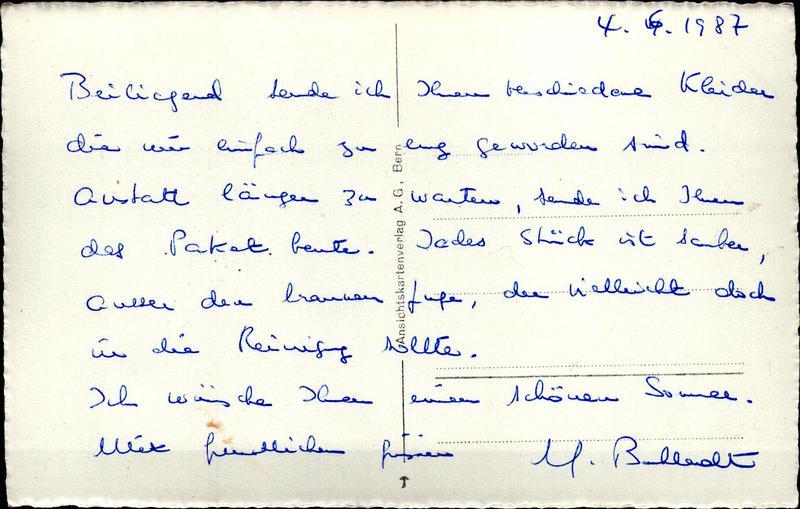 4. 6. 1987
Beiliegend sende ich Ihnen verschiedene Kleider
die mir einfach zu eng geworden sind.
Anstatt länger zu warten, sende ich Ihnen
das Paket heute. Jedes Stück ist sauber,
ausser dem braunen Jupe, der vielleicht doch
in die Reinigung sollte.
Ich wünsche Ihnen einen schönen Sommer.
Mit freundlichen Grüssen M.
Ansichtskartenverlag A. G., Bern